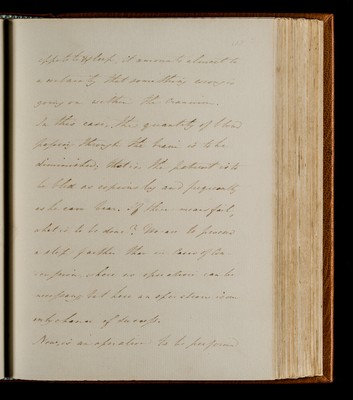 opposite to sleep, it amounts almost to
a certainty that something wrong is
going on within the Cranium.
In this case, the quantity of blood
passing through the brain is to be
diminished, that is, the patient is to
be bled as copiously and frequently
as he can bear. If these means fail,
what is to be done? We are to proceed
a step farther than in cases of Con-
cussion, where no operation can be
necessary, but here an operation is our
only chance of success.
Now, is an operation to be performed